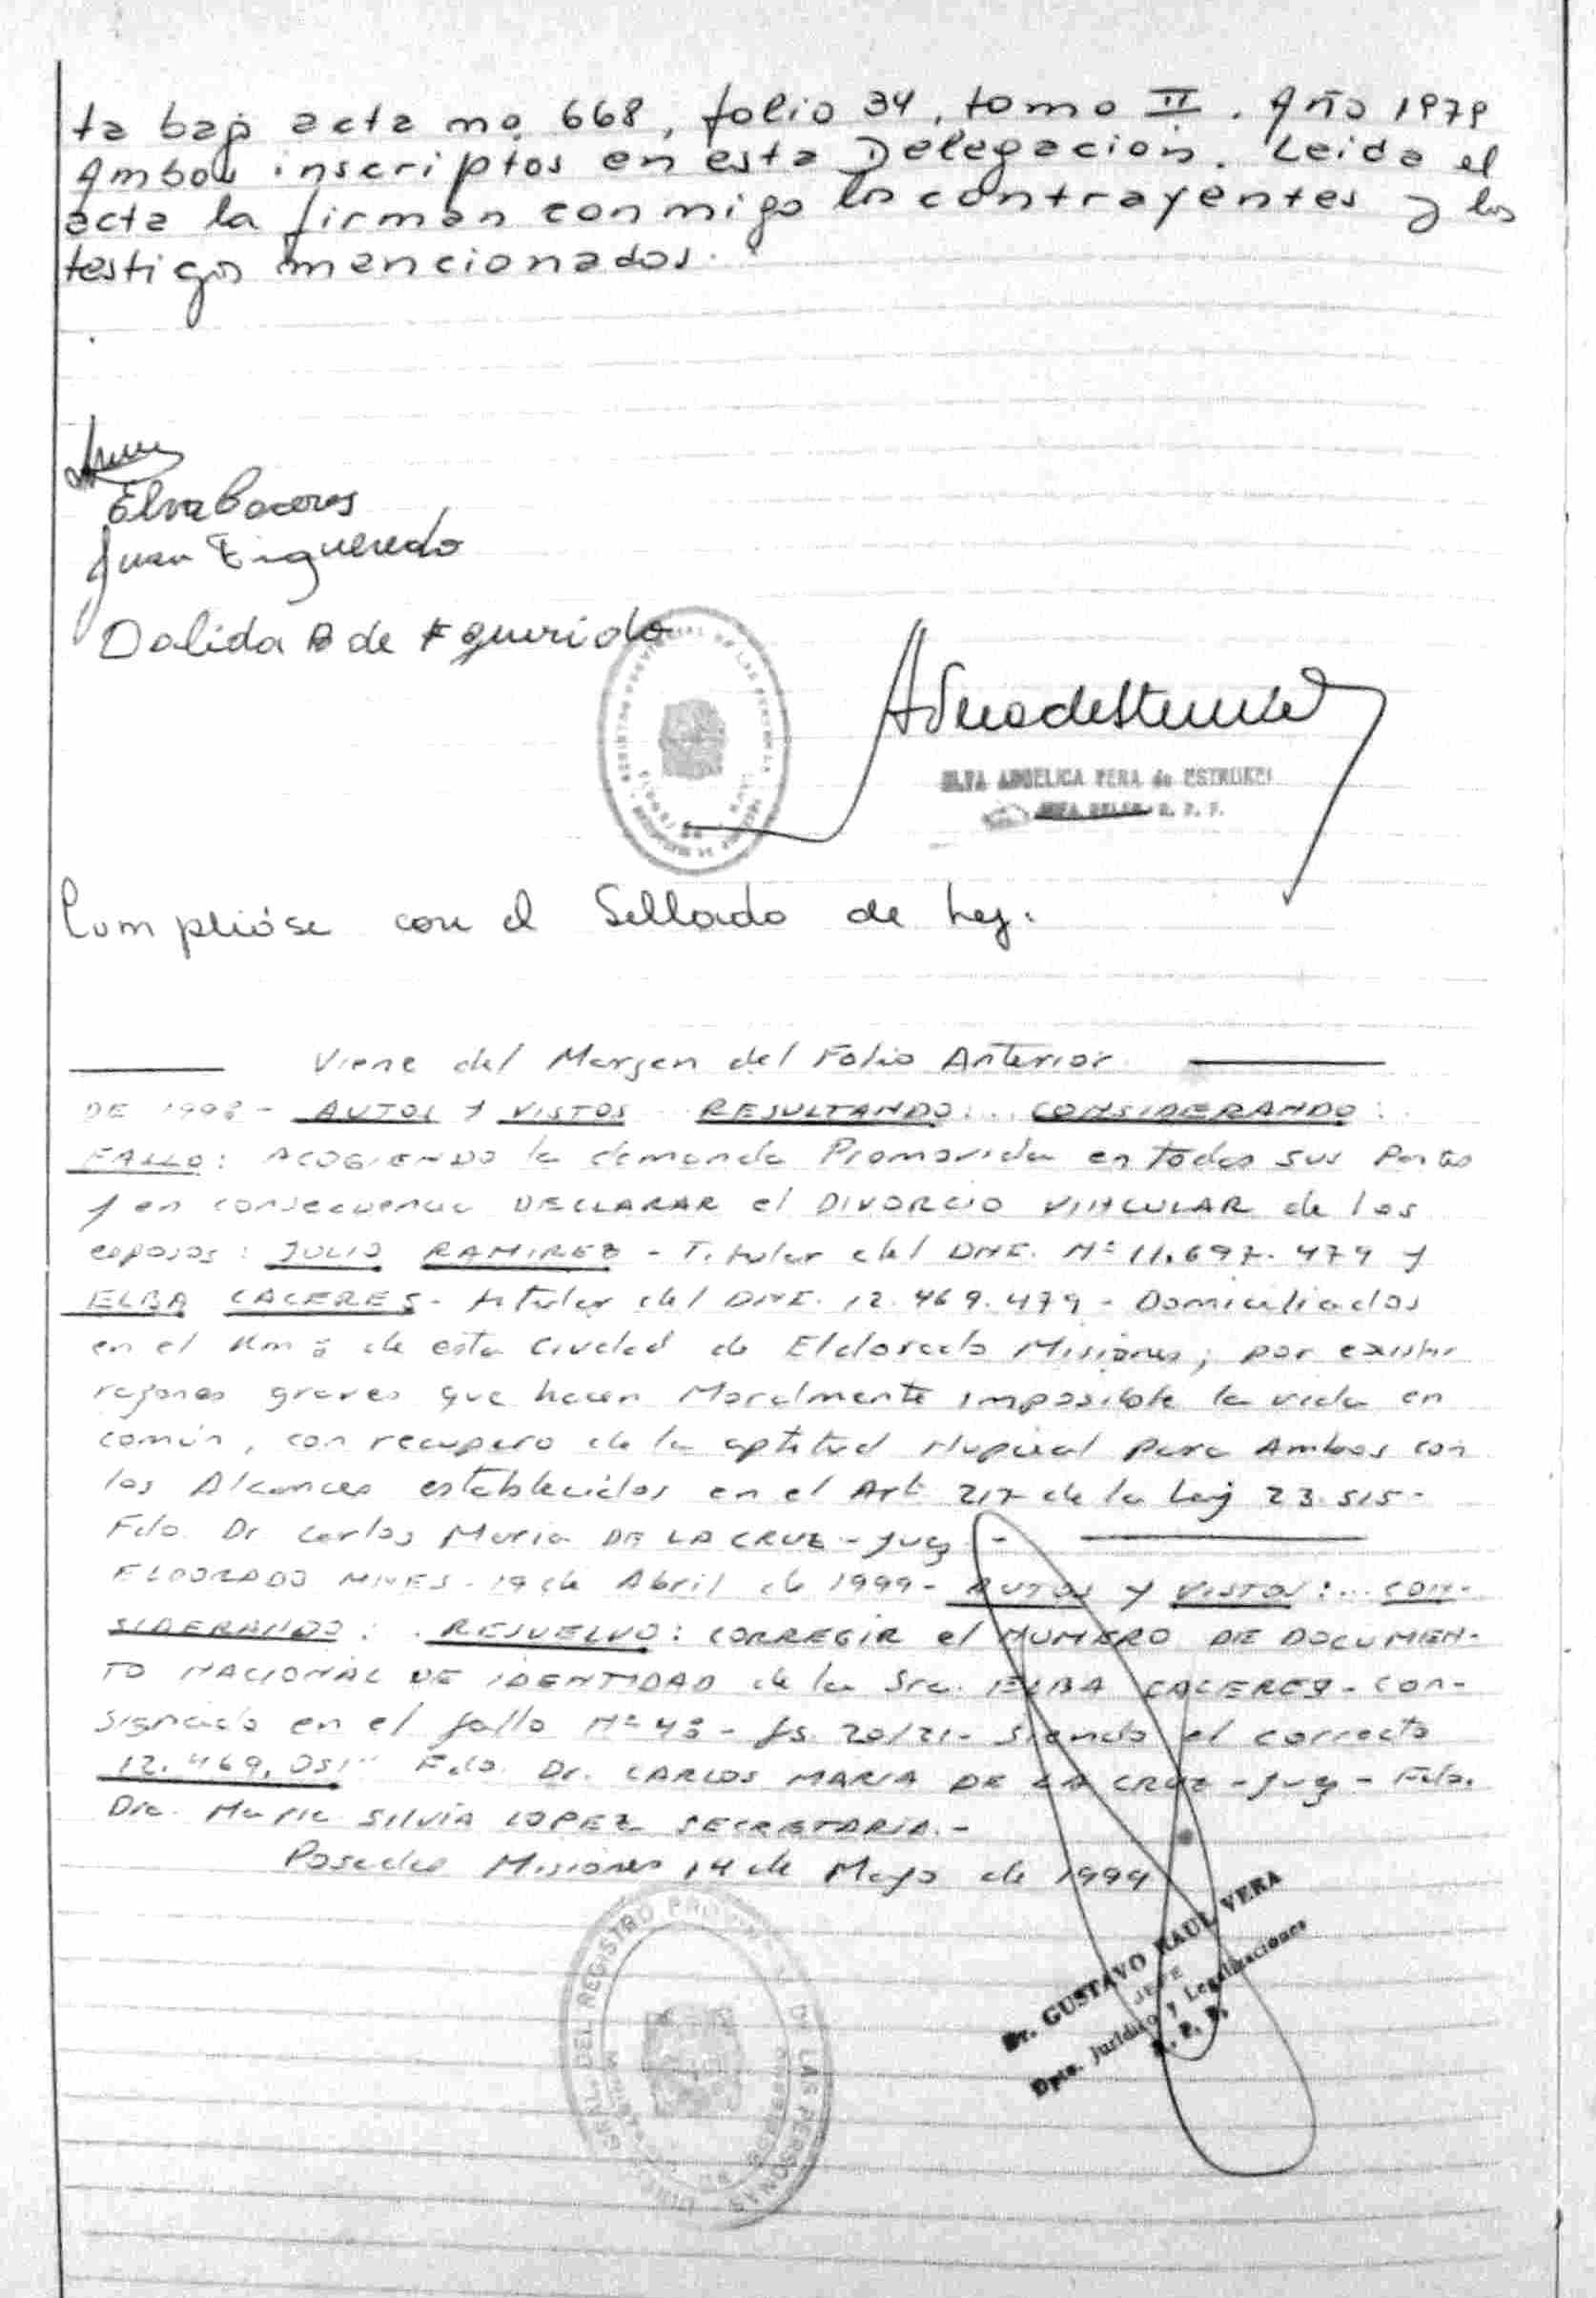 ta bajo acta no 668, folio 34, tomo II. Año 1979
Ambos inscriptos en esta Delegación. Leida el
acta la firman conmigo los contrayentes y los
testigos mencionados.
Elva Caceres
Juan Figueredo
Dalida B de Figuerido
ELVA ANGELICA VERA de
R. P. P.
Cumplióse con el Sellado de Ley.
Viene del Margen del Folio Anterior
DE 1998 - AUTOS Y VISTOS RESULTANDO: .. CONSIDERANDO:
FALLO: ACOGIENDO la demanda Promovida en todas sus Partes
y en consecuencia DECLARAR el DIVORCIO VINCULAR de los
esposos: JULIO RAMIREZ - Titular del DNI. Nº 11.697.479 y
ELBA CACERES - titular del DNI. 12.469.479 - Domiciliados
en el Km de esta Ciudad de Eldorado Misiones; por existir
razones graves que hacen Moralmente imposible la vida en
común, con recupero de la aptitud Nupcial para Ambos con
los Alcances establecidos en el Art 217 de la Ley 23.515 -
Fdo. Dr Carlos Maria DE LA CRUZ - Juez -
ELDORADO MNES - 19 de Abril de 1999 - AUTOS Y VISTOS: ... CON-
SIDERANDO: . RESUELVO: CORREGIR el NUMERO DE DOCUMEN-
TO NACIONAL DE IDENTIDAD de la Sra. ELBA CACERES - con-
signado en el fallo Nº 43 - fs. 20/21 - siendo el correcto
12.469.051" Fdo. Dr. CARLOS MARIA DE LA CRUZ - Juez - Fdo.
Dra. Maria SILVIA LOPEZ SECRETARIA. -
Posadas Misiones 14 de Mayo de 1999
Dr. GUSTAVO RAUL VERA
JEFE
Dpto. Jurídico y Legalizaciones
R. P. P.
GRAL. DEL REGISTRO PROVINCIAL DE LAS PERSONAS